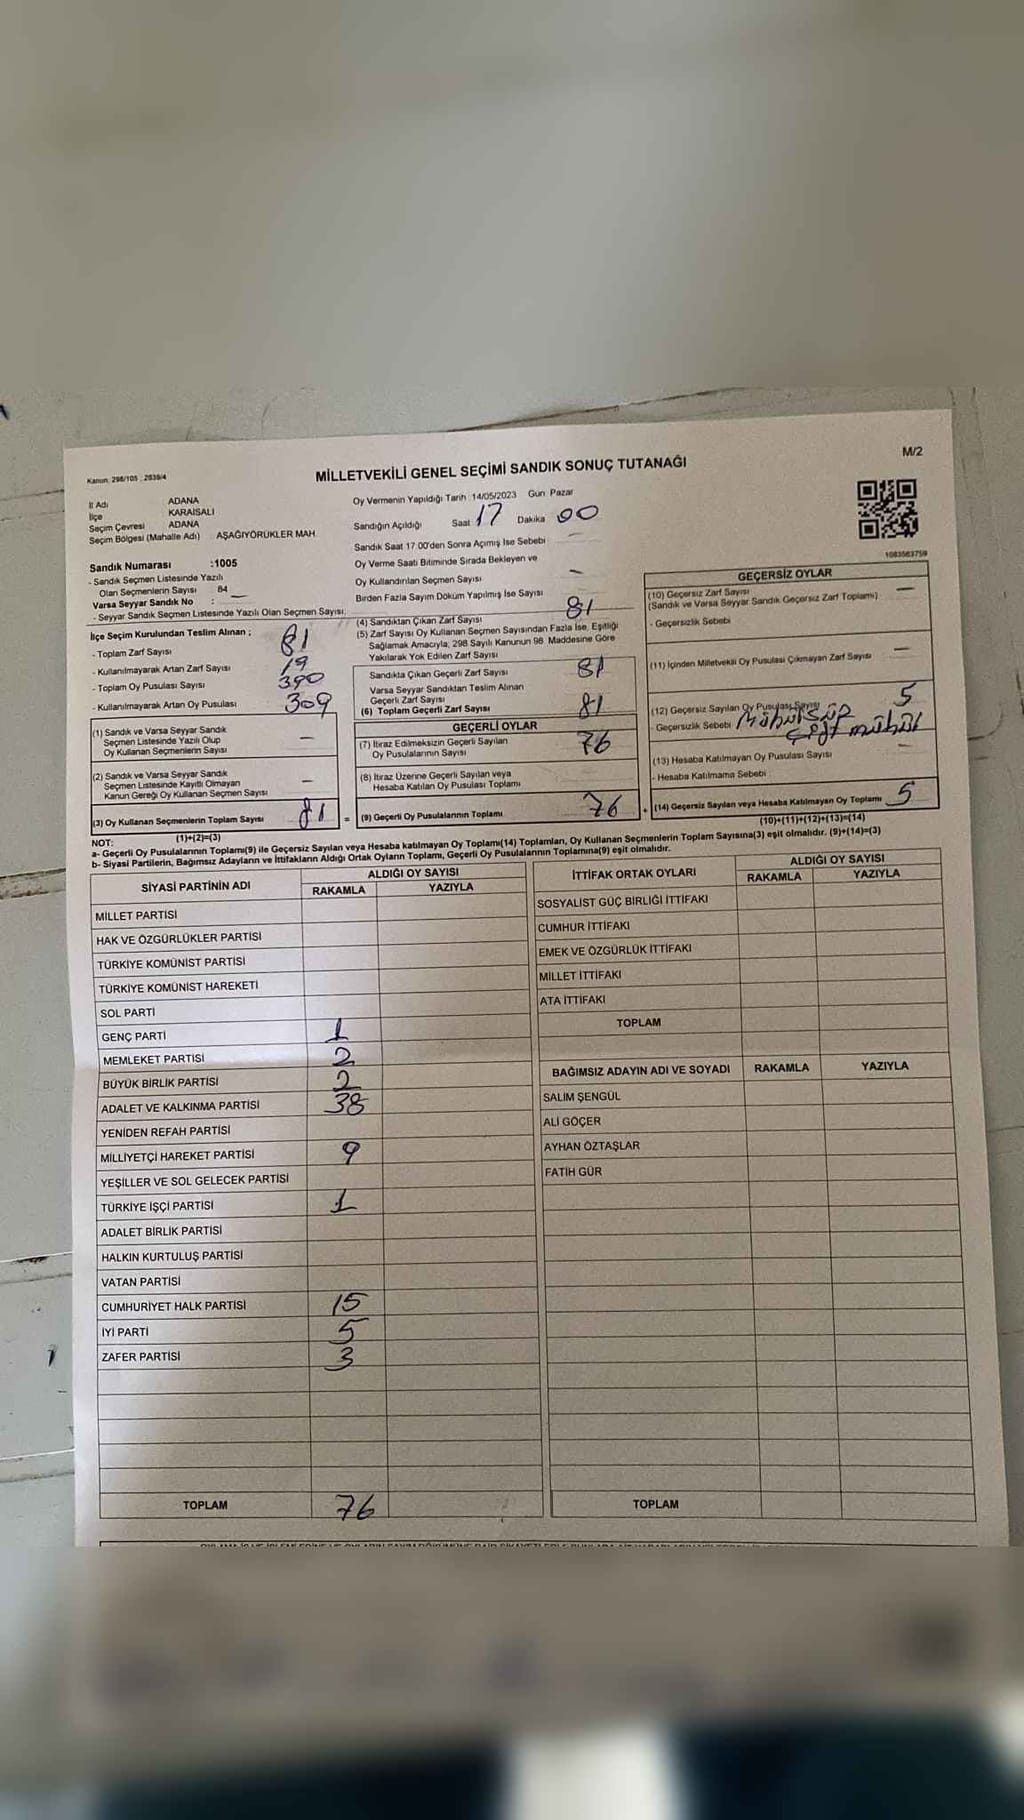 M/2
Kanun: 298/105 ; 2839/4
MİLLETVEKİLİ GENEL SEÇİMİ SANDIK SONUÇ TUTANAĞI
İl Adı ADANA
İlçe KARAISALI
Seçim Çevresi ADANA
Seçim Bölgesi (Mahalle Adı) : AŞAĞIYÖRÜKLER MAH.
Oy Vermenin Yapıldığı Tarih :14/05/2023 Gün: Pazar
Sandığın Açıldığı Saat 17 Dakika 00
Sandık Saat 17:00'den Sonra Açılmış İse Sebebi —
Oy Verme Saati Bitiminde Sırada Bekleyen ve
Oy Kullandırılan Seçmen Sayısı —
Birden Fazla Sayım Döküm Yapılmış İse Sayısı
Sandık Numarası :1005
- Sandık Seçmen Listesinde Yazılı
Olan Seçmenlerin Sayısı : 84
Varsa Seyyar Sandık No : —
- Seyyar Sandık Seçmen Listesinde Yazılı Olan Seçmen Sayısı:
İlçe Seçim Kurulundan Teslim Alınan ;
- Toplam Zarf Sayısı 81
- Kullanılmayarak Artan Zarf Sayısı 19
- Toplam Oy Pusulası Sayısı 390
- Kullanılmayarak Artan Oy Pusulası 309
(1) Sandık ve Varsa Seyyar Sandık
Seçmen Listesinde Yazılı Olup
Oy Kullanan Seçmenlerin Sayısı —
(2) Sandık ve Varsa Seyyar Sandık
Seçmen Listesinde Kayıtlı Olmayan
Kanun Gereği Oy Kullanan Seçmen Sayısı —
(3) Oy Kullanan Seçmenlerin Toplam Sayısı 81 =
(1)+(2)=(3)
(4) Sandıktan Çıkan Zarf Sayısı 81
(5) Zarf Sayısı Oy Kullanan Seçmen Sayısından Fazla İse, Eşitliği
Sağlamak Amacıyla, 298 Sayılı Kanunun 98. Maddesine Göre
Yakılarak Yok Edilen Zarf Sayısı
Sandıkta Çıkan Geçerli Zarf Sayısı 81
Varsa Seyyar Sandıktan Teslim Alınan
Geçerli Zarf Sayısı
(6) Toplam Geçerli Zarf Sayısı 81
GEÇERLİ OYLAR
(7) İtiraz Edilmeksizin Geçerli Sayılan
Oy Pusulalarının Sayısı 76
(8) İtiraz Üzerine Geçerli Sayılan veya
Hesaba Katılan Oy Pusulası Toplamı
(9) Geçerli Oy Pusulalarının Toplamı 76 +
1083563759
GEÇERSİZ OYLAR
(10) Geçersiz Zarf Sayısı —
(Sandık ve Varsa Seyyar Sandık Geçersiz Zarf Toplamı)
- Geçersizlik Sebebi
(11) İçinden Milletvekili Oy Pusulası Çıkmayan Zarf Sayısı —
(12) Geçersiz Sayılan Oy Pusulası Sayısı 5
- Geçersizlik Sebebi
çift mühür
(13) Hesaba Katılmayan Oy Pusulası Sayısı —
- Hesaba Katılmama Sebebi
(14) Geçersiz Sayılan veya Hesaba Katılmayan Oy Toplamı 5
(10)+(11)+(12)+(13)=(14)
NOT:
a- Geçerli Oy Pusulalarının Toplamı(9) ile Geçersiz Sayılan veya Hesaba Katılmayan Oy Toplamı(14) Toplamları, Oy Kullanan Seçmenlerin Toplam Sayısına(3) eşit olmalıdır. (9)+(14)=(3)
b- Siyasi Partilerin, Bağımsız Adayların ve İttifakların Aldığı Ortak Oyların Toplamı, Geçerli Oy Pusulalarının Toplamına(9) eşit olmalıdır.
SİYASİ PARTİNİN ADI
ALDIĞI OY SAYISI
RAKAMLA YAZIYLA
MİLLET PARTİSİ
HAK VE ÖZGÜRLÜKLER PARTİSİ
TÜRKİYE KOMÜNİST PARTİSİ
TÜRKİYE KOMÜNİST HAREKETİ
SOL PARTİ
GENÇ PARTİ 1
MEMLEKET PARTİSİ 2
BÜYÜK BİRLİK PARTİSİ 2
ADALET VE KALKINMA PARTİSİ 38
YENİDEN REFAH PARTİSİ
MİLLİYETÇİ HAREKET PARTİSİ 9
YEŞİLLER VE SOL GELECEK PARTİSİ
TÜRKİYE İŞÇİ PARTİSİ 1
ADALET BİRLİK PARTİSİ
HALKIN KURTULUŞ PARTİSİ
VATAN PARTİSİ
CUMHURİYET HALK PARTİSİ 15
İYİ PARTİ 5
ZAFER PARTİSİ 3
TOPLAM 76
İTTİFAK ORTAK OYLARI
ALDIĞI OY SAYISI
RAKAMLA YAZIYLA
SOSYALİST GÜÇ BİRLİĞİ İTTİFAKI
CUMHUR İTTİFAKI
EMEK VE ÖZGÜRLÜK İTTİFAKI
MİLLET İTTİFAKI
ATA İTTİFAKI
TOPLAM
BAĞIMSIZ ADAYIN ADI VE SOYADI RAKAMLA YAZIYLA
SALIM ŞENGÜL
ALİ GÖÇER
AYHAN ÖZTAŞLAR
FATİH GÜR
TOPLAM